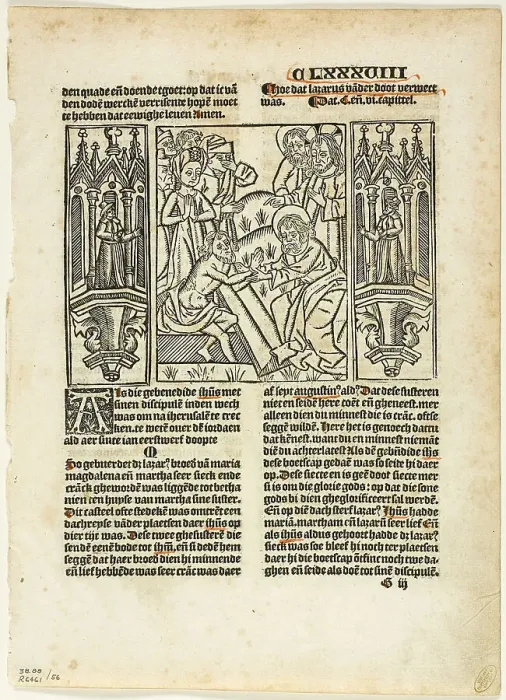 C LXXXCIII
den quade eñ doende tgoet: op dat ic vā
den dodē werckē verrisente hopē moet
te hebben dat eewighe leuen Amen.
Choe dat lazarus vāder doot verwect
was. Dat. C. eñ. vi. capittel.
Als die gebenedide ihūs met
sinen discipulē inden wech
was om na iherusalē te trec
ken. te wetē ouer dē iordaen
ald aer sunte ian eerstwerf doopte
So gebuerdet dz lazar? broed vā maria
magdalena eñ martha seer sieck ende
crāck ghewordē was liggēde tot betha
nien een huyse van martha sine suster.
Dit casteel ofte stedekē was omtrēt een
dachreyse vāder plaetsen daer ihūs op
dier tijt was. Dese twee ghesusterē die
sendē eenē bode tot ihm̄. eñ si dedē hem
seggē dat haer broed dien hi minnende
eñ lief hebbēde was seer crāc was daer
af sept augustin? ald? Dat dese susteren
niet en seidē here coēt eñ gheneest. mer
alleen dien du minnest die is crāc. oftse
seggē wildē. Here het is genoech dattu
dat kēnest. want du en minnest niemāt
diē du achterlatest Als dē gebn̄dide ihs
dese boetscap gedaē was so seide hi daer
op. Dese siecte en is geē doot siecte mer
si is om die glorie gods: op dat die sone
gods bi dien gheglorificeert sal werdē.
Eñ op die dach sterf lazar? Ihūs hadde
mariā. marthām eñ lazarū seer lief Eñ
als ihūs aldus gehoort hadde dz lazar?
sieck was soe bleef hi noch ter plaetsen
daer hi die boetscap ōtfinc noch twe da-
ghen eñ seide als doē tot sinē discipulē.
G iij
38.88
R6461/56